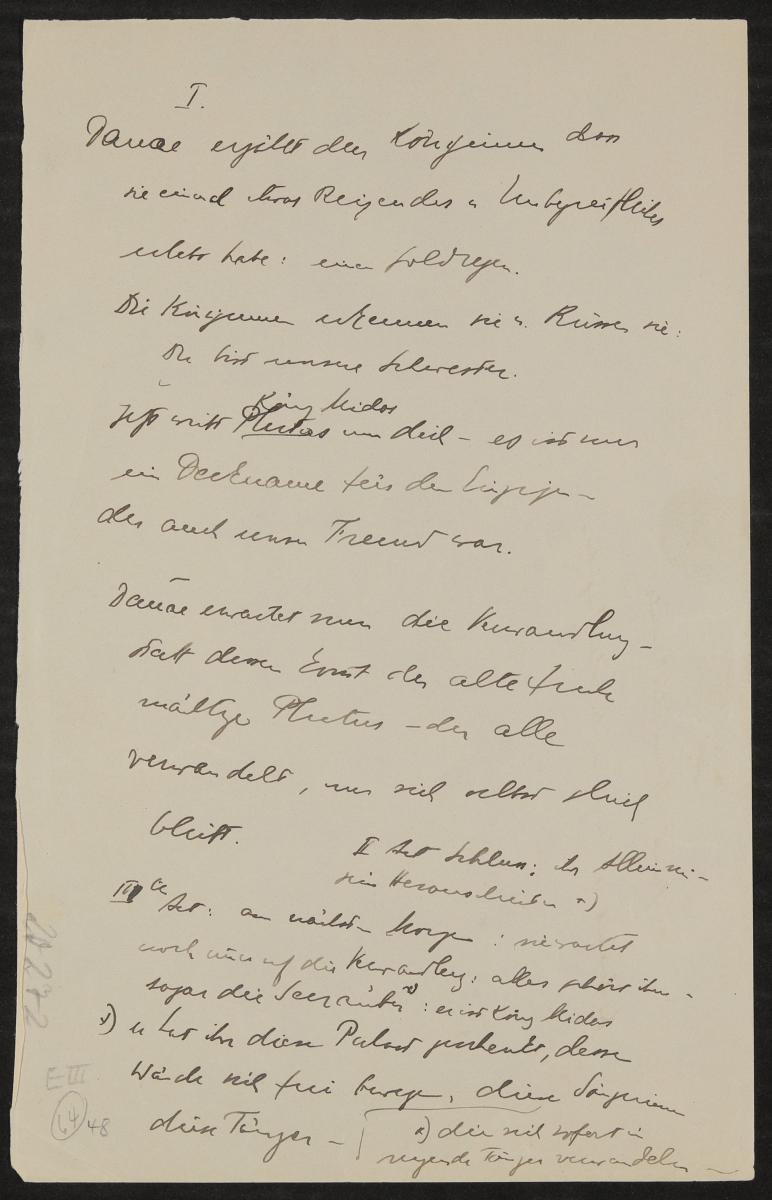 I.
Danae erzählt den Königinnen dass
sie einmal etwas Reizendes u Unbegreifliches
erlebt habe: einen Goldregen.
Die Königinnen erkennen sie u. Küssen sie:
Du bist unsere Schwester.
König Midas
Jetzt wirbt Plutus um dich – es ist nur
ein Deckname für den Einzigen –
der auch unser Freund war.
Danae erwartet nun die Verwandlung –
statt dessen kommt der alte
Plutus – der alle
verwandelt, nur sich selbst gleich
bleibt.
II Act Schluss: ihr Alleinsein –
sein x)
III Act: am nächsten Morgen: sie wartet
noch immer auf die Verwandlung: alles gehört ihm –
sogar die Seeräuber x): er ist König Midas
x) er hat ihr diesen Palast geschenkt, dessen
Wände sich frei bewegen, diese Sängerinnen
diese Tänzer –
x) die sich sofort in
Tänzer verwandeln –
20272
E III
64
48